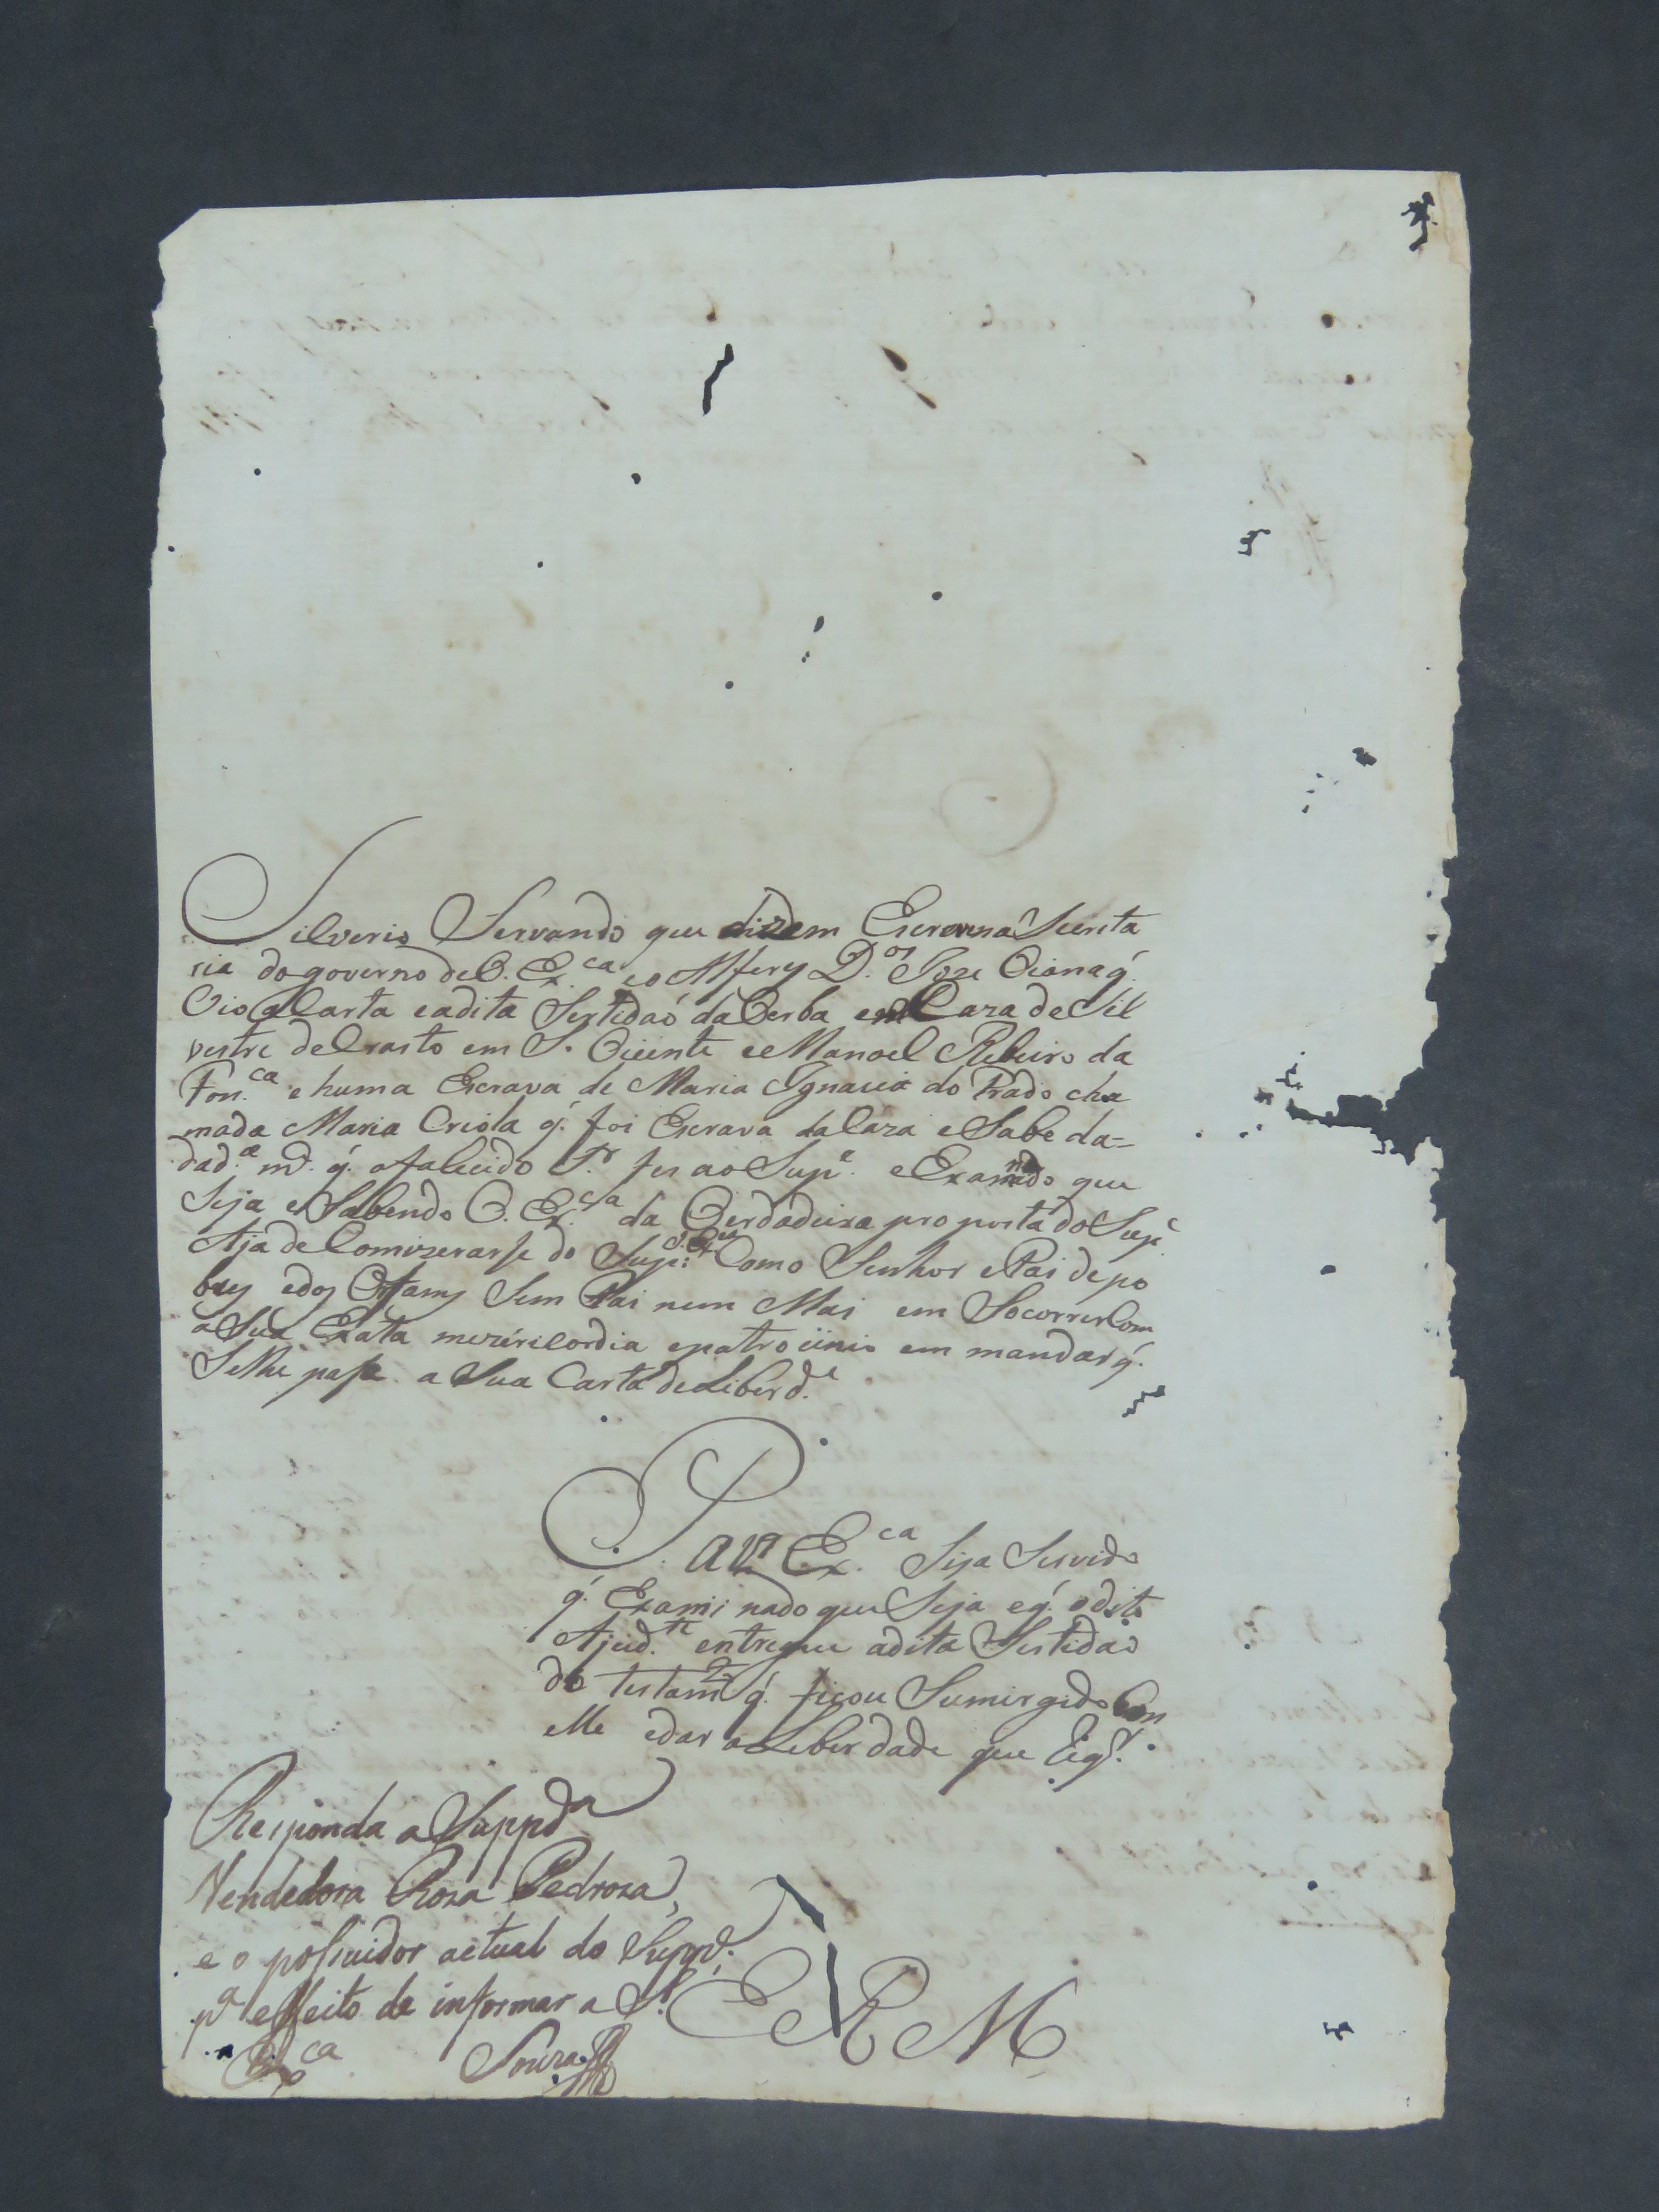 Silverio Servando que dizem Escrever na Secreta
ria do governo de V. Ex.ca e o Alfery D.os Joze Viana q́.
Vio a Carta e a dita Sertidaó da Verba em Caza de Sil
vestre de Crasto em S. Viiente e Manoel Ribeiro da
Fon.ca e huma Escrava de Maria Ignacia do Prado cha
mada Maria Criola q́. foi Escrava da Caza e Sabe da=
dad.a m.to q́. o falecido fes ao Sup.e e Examinado que
Seja e Sabendo V. Ex.ca da Verdadeira proposta do Sup.e
Aja de Comizerarse do Sup.e Como Senhor e Pai de po
bres e dos Orfams Sem Pai nem Mai em Socorrer Com
a Sua Exata miziricordia e patrociinio em mandar q́.
Se lhe passe a Sua Carta de Liberd.e
P. a V.a Ex.ca Seja Servido
q́. Examinado que Seja e q́. o dito
Ajud.te entregue a dita Sertidaó
do testam.to q́. ficou Sumirgido Com
elle e dar a Liberdade que
Responda a Suppd.a
Vendedora Roza Pedroza,
e o possuidor actual do Supp.e
p.a effeito de informar a S.
Ex.ca Souza
E R M